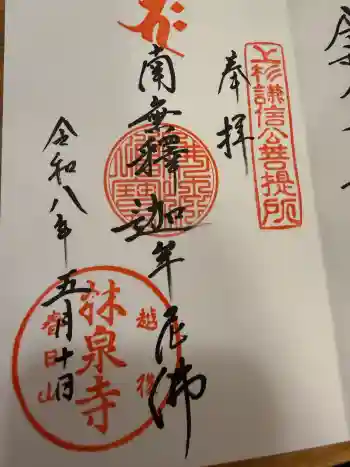 奉拝
上杉謙信公菩提所
南無釋迦牟尼佛
令和八年五月十日
越後
林泉寺
春日山